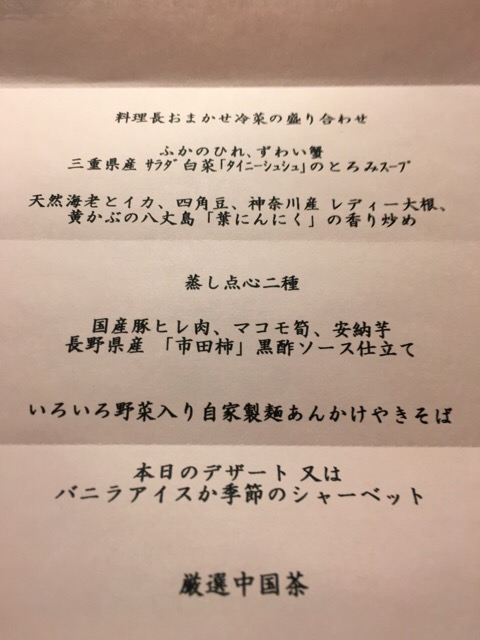 料理長おまかせ冷菜の盛り合わせ
ふかのひれ、ずわい蟹
三重県産 ｻﾗﾀﾞ白菜「ﾀｲﾆｰｼｭｼｭ」のとろみｽｰﾌﾟ
天然海老とイカ、四角豆、神奈川産 レディー大根、
黄かぶの八丈島「葉にんにく」の香り炒め
蒸し点心二種
国産豚ヒレ肉、マコモ筍、安納芋
長野県産 「市田柿」黒酢ソース仕立て
いろいろ野菜入り自家製麺あんかけやきそば
本日のデザート 又は
バニラアイスか季節のシャーベット
厳選中国茶